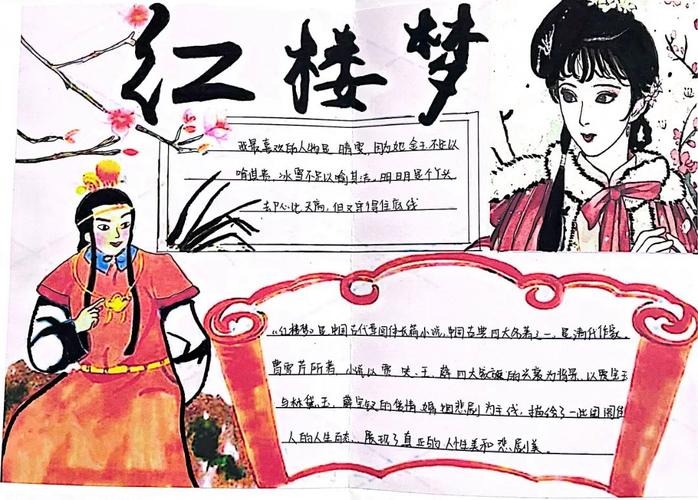 红楼梦
我最喜欢的人物是晴雯,因为她金玉不足以
喻其贵,冰雪不足以喻其洁,明明是个丫头
却心比天高,但又守得住底线
《红楼梦》是中国古代章回体长篇小说,中国古典四大名著之一,是清代作家
曹雪芹所著,小说以贾、史、王、薛四大家族的兴衰为背景,以贾宝玉
与林黛玉、薛宝钗的爱情婚姻悲剧为主线,描绘了一些闺阁佳
人的人生百态、展现了真正的人性美和悲剧美。